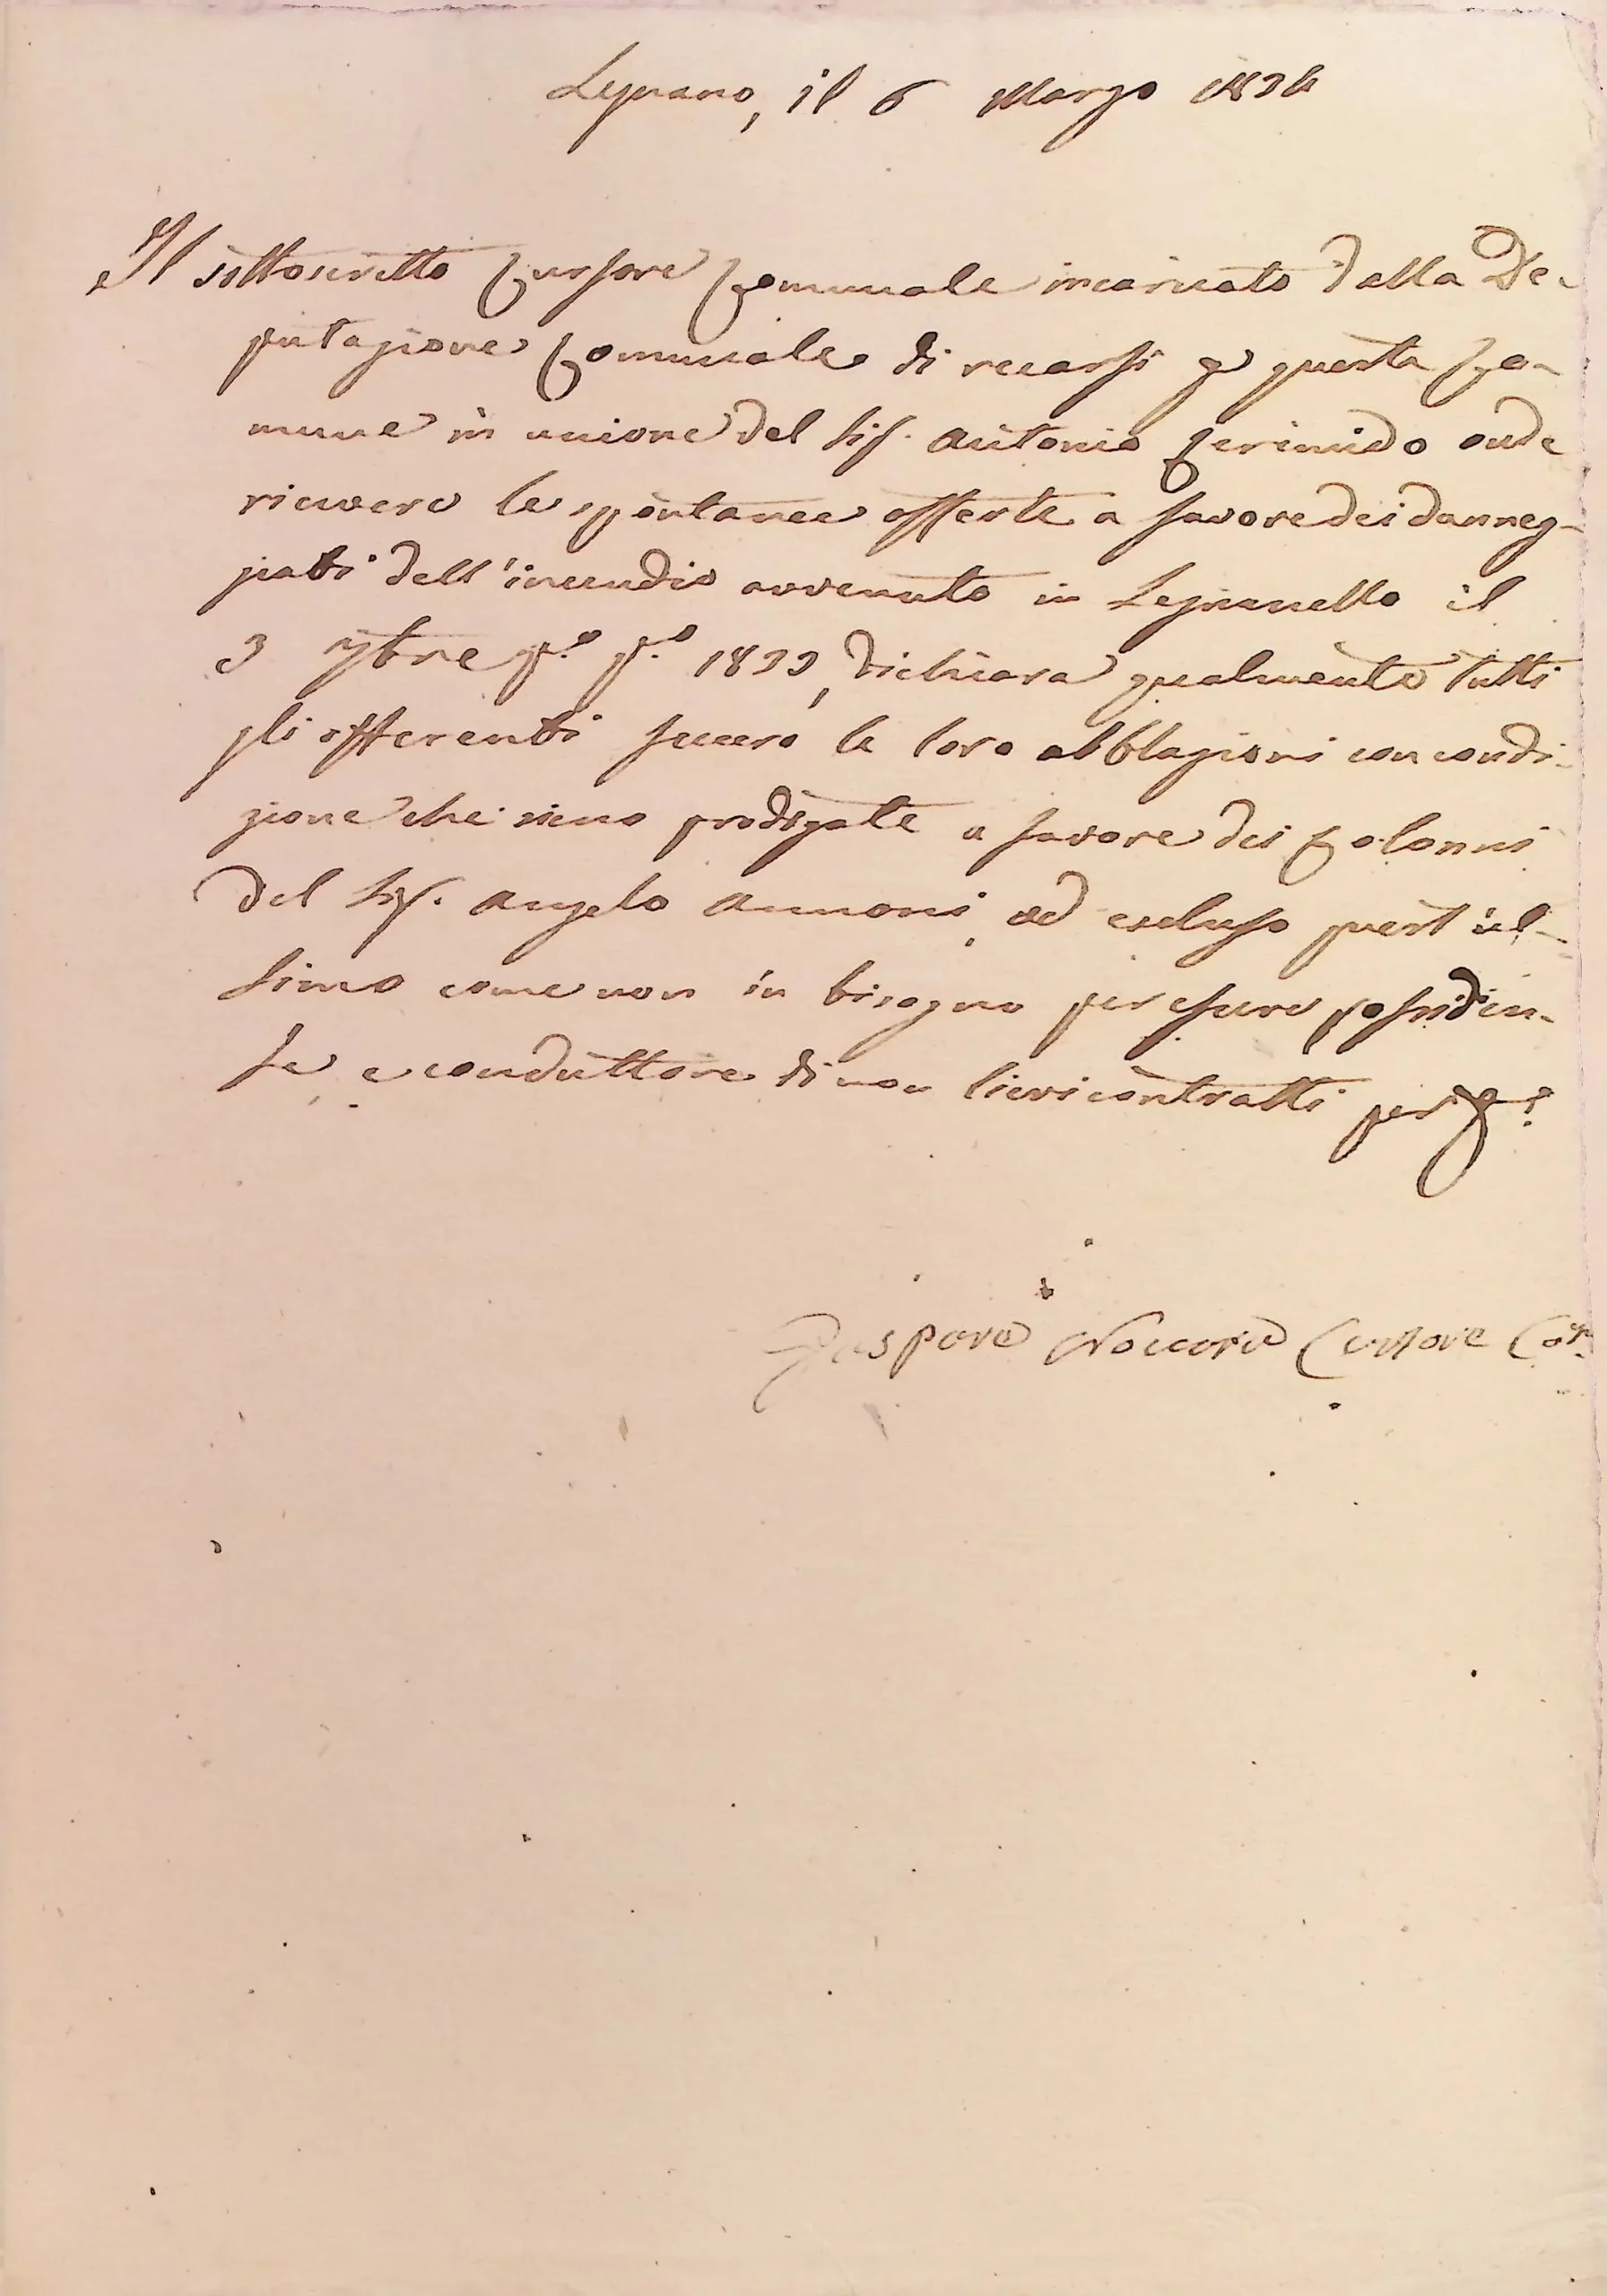 Legnano, il 6 Marzo 1834
Il sottoscritto Cursore Comunale incaricato dalla De-
putazione Comunale di recarsi p questa Co-
mune in unione del Sig. Antonio onde
ricevere le spontanee offerte a favore dei danneg-
giati dell'incendio avvenuto in Legnanello il
3 9bre p.º p.º 1833, dichiara qualmente tutti
gli offerenti fecero le loro obblazioni con condi-
zione che sieno prodigate a favore dei Colonni
del Sig. Angelo Annoni, ed escluso quest'ul-
timo come non in bisogno per essere possiden-
te e conduttore di non lievi contratti per
Gaspare Cursore Com